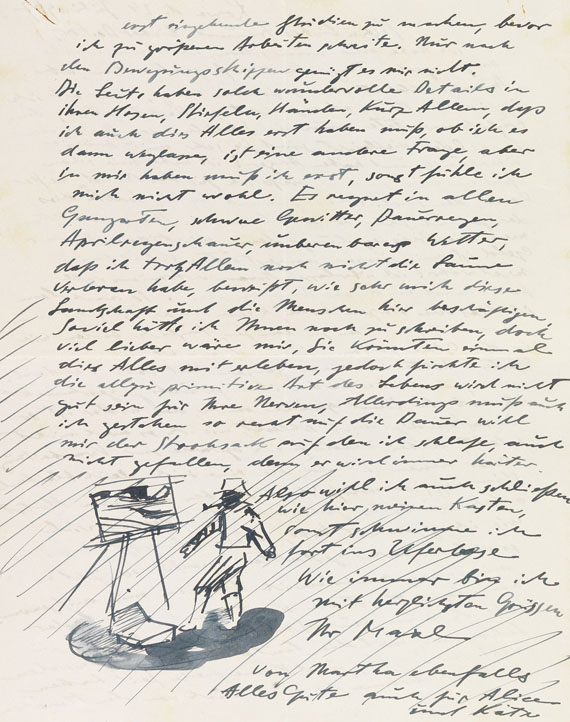 erst eingehende Studien zu machen, bevor
ich zu größeren Arbeiten schreite. Nur nach
den Bewegungsskizzen genügt es mir nicht.
Die Leute haben solch wundervolle Details in
ihren Hosen, Stiefeln, Händen, kurz Allem, daß
ich auch dies Alles erst haben muß, ob ich es
dann weglasse, ist eine andere Frage, aber
in mir haben muß ich erst, sonst fühle ich
mich nicht wohl. Es regnet in allen
Gangarten, schwere Gewitter, Dauerregen,
Aprilregenschauer, unberechenbares Wetter,
daß ich trotz Allem noch nicht die Laune
verloren habe, beweist, wie sehr mich diese
Landschaft und die Menschen hier beschäftigen
Soviel hätte ich Ihnen noch zu schreiben, doch
viel lieber wäre mir, Sie könnten einmal
dies Alles mit erleben, jedoch fürchte ich
die allzu primitive Art des Lebens wird nicht
gut sein für Ihre Nerven, Allerdings muß auch
ich gestehen so recht auf die Dauer will
mir der Strohsack auf den ich schlafe, auch
nicht gefallen, denn er wird immer härter.
Also will ich auch schließen
wie hier meinen Kasten,
sonst schwimme ich
fort ins Uferlose
Wie immer bin ich
mit herzlichsten Grüssen
Ihr
von Martha ebenfalls
Alles Gute auch für Alice
und Käte